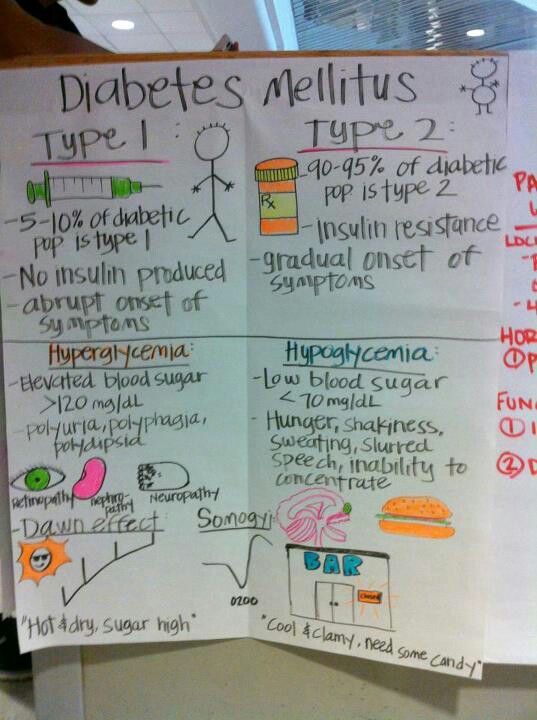 Diabetes Mellitus
Type 1:
-5-10% of diabetic
pop is type 1
-No insulin produced
-abrupt onset of
symptoms
Type 2:
Rx
-90-95% of diabetic
pop. is type 2
-insulin resistance
-gradual onset of
symptoms
Hyperglycemia:
-Elevated blood sugar
>120 mg/dL
-polyuria, polyphagia,
polydipsia
Retinopathy
nephro-
pathy
Neuropathy
-Dawn effect:
"Hot & dry, sugar high"
Hypoglycemia:
-Low blood sugar
<70mg/dL
- Hunger, shakiness,
sweating, slurred
speech, inability to
concentrate
Somogyi
0200
BAR
closed
"Cool & clamy, need some candy"
PA
HOR
①
FUNC
① I
② D